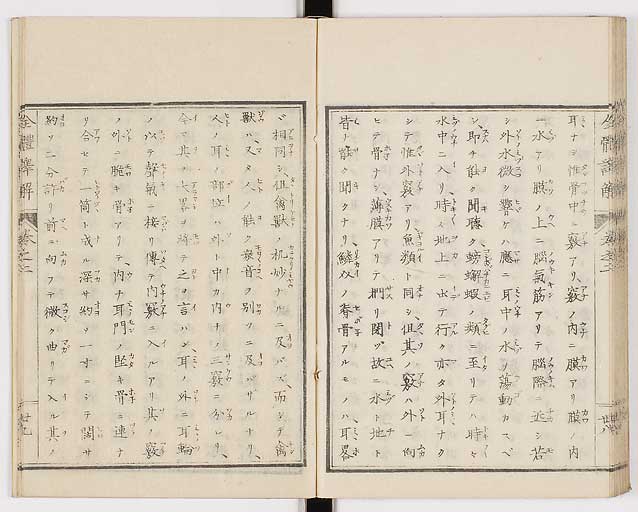 耳ナシ惟骨中ニ竅アリ竅ノ内ニ膜アリ膜ノ内
一水アリ膜ノ上ニ腦氣筋アリテ腦際ニ丞シ若
シ外水微ク響ケハ應ニ耳中ノ水ヲ蕩動カスベ
シ即チ能ク聞聽ク螃蠏蝦ノ類ニ至リテハ時々
水中ニ入リ時々地上ニ出テ行ク亦タ外耳ナク
シテ惟外竅アリ魚類ト同シ但其ノ竅ハ外ニ向
ヒテ骨ナシ薄膜アリテ押リ閉ヅ故ニ水ト地ト
皆ナ能ク聞クナリ鱗介ノ脊骨アルモノハ耳畧
ボ相同シ但禽獸ノ机妙ナルニ及バズ而シテ禽
獸ハ又タ人ノ能ク衆音ヲ別ツニ及バザルナリ
人ノ耳ノ部位ハ外ト中カ内ナノ三竅ニ分レリ
今マ其ノ大畧ヲ將テ之ヲ言ハン耳ノ外ニ耳輪
ノ以テ聲氣ニ接リ傳テ内竅ニ入ルアリ其ノ竅
ノ外ニ脆キ骨アリテ内ナ耳門ノ堅キ骨ニ連ナ
リ合セテ一筒ト成ル深サ約ソ一寸ニシテ闊サ
約ソ二分許リ前ニ向フテ微ク曲リテ入ル其ノ
全體譯解
卷之二
廿八
全體譯解
卷之二
廿九